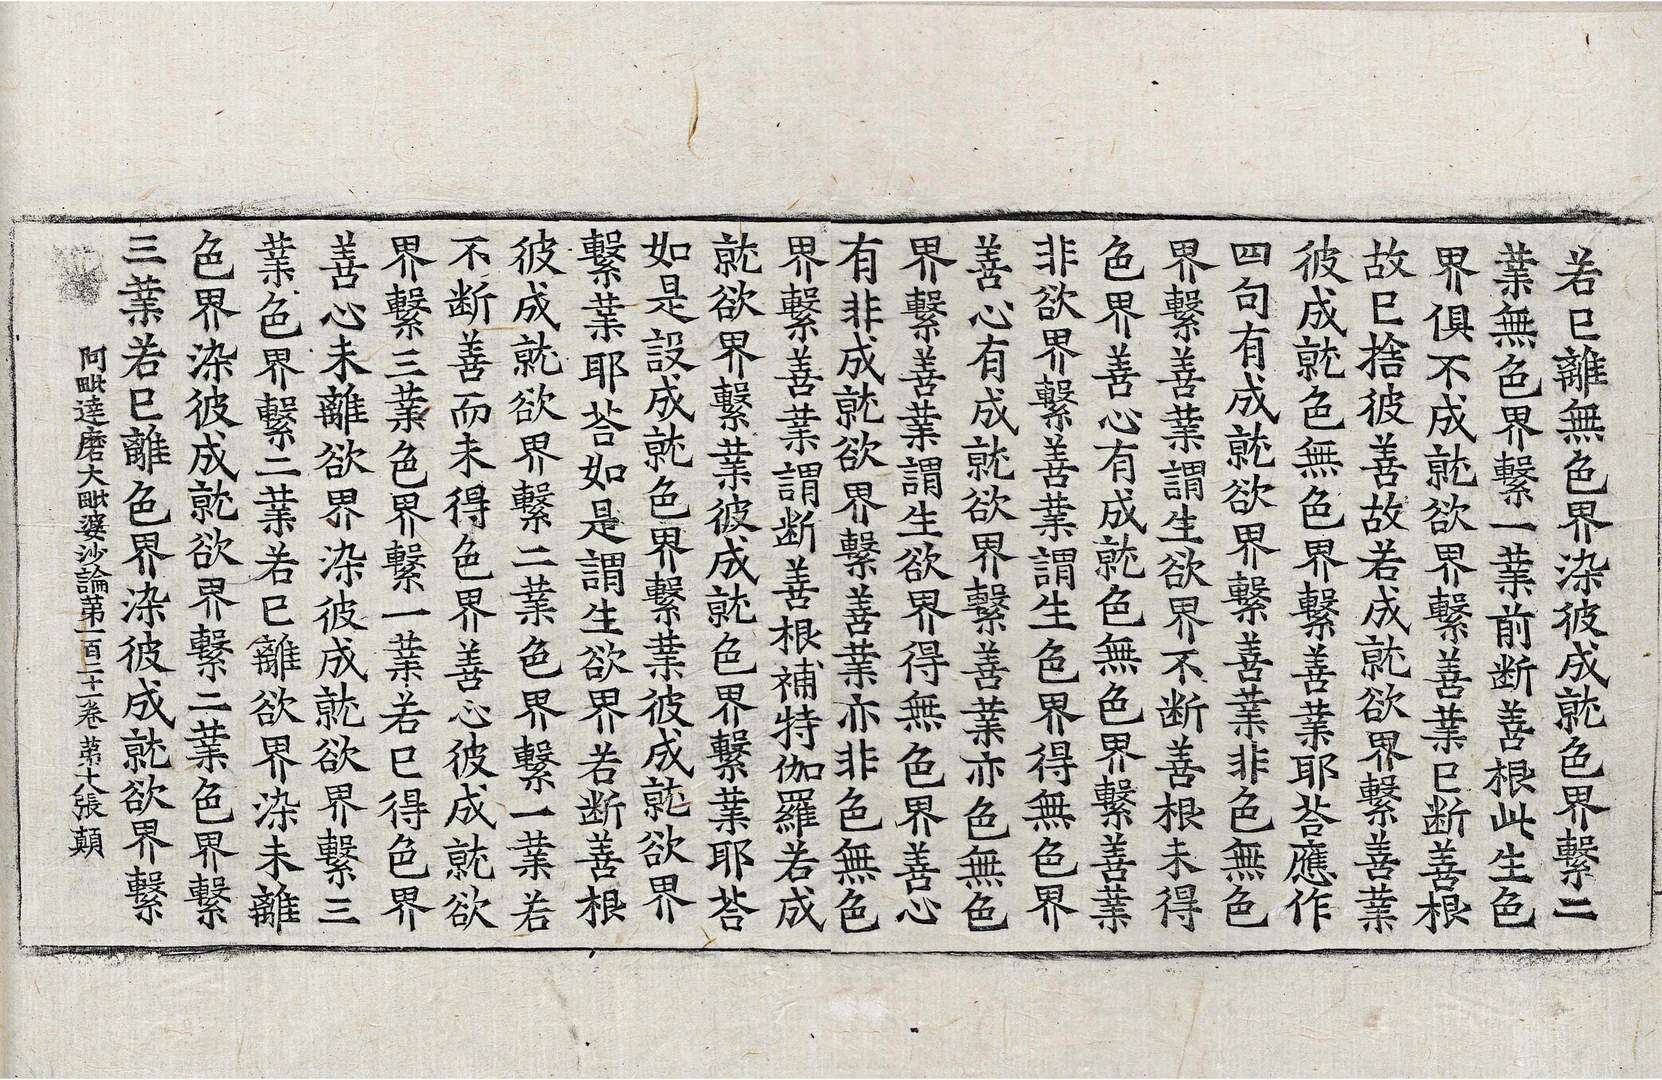 若已離無色界染彼成就色界繫二
葉無色界繫一葉前断善根此生色
界俱不成就欲界繫善葉已断善根
故已捨彼善故若成就欲界繫善葉
彼成就色無色界繫善葉耶荅應作
四句有成就欲界繫善葉非色無色
界繫善葉謂生欲界不断善根未得
色界善心有成就色無色界繫善葉
非欲界繫善葉謂生色界得無色界
善心有成就欲界繫善葉亦色無色
界繫善葉謂生欲界得無色界善心
有非成就欲界繫善葉亦非色無色
界繫善葉謂断善根補特伽羅若成
就欲界繫葉彼成就色界繫葉耶荅
如是設成就色界繫葉彼成就欲界
繫葉耶荅如是謂生欲界若断善根
彼成就欲界繫二葉色界繫一葉若
不断善而未得色界善心彼成就欲
界繫三葉色界繫一葉若已得色界
善心未離欲界染彼成就欲界繫三
葉色界繫二葉若已離欲界染未離
色界染彼成就欲界繫二葉色界繫
三葉若已離色界染彼成就欲界繫
阿毗達磨大毗婆沙論第一百二十二卷 第十八張 顛